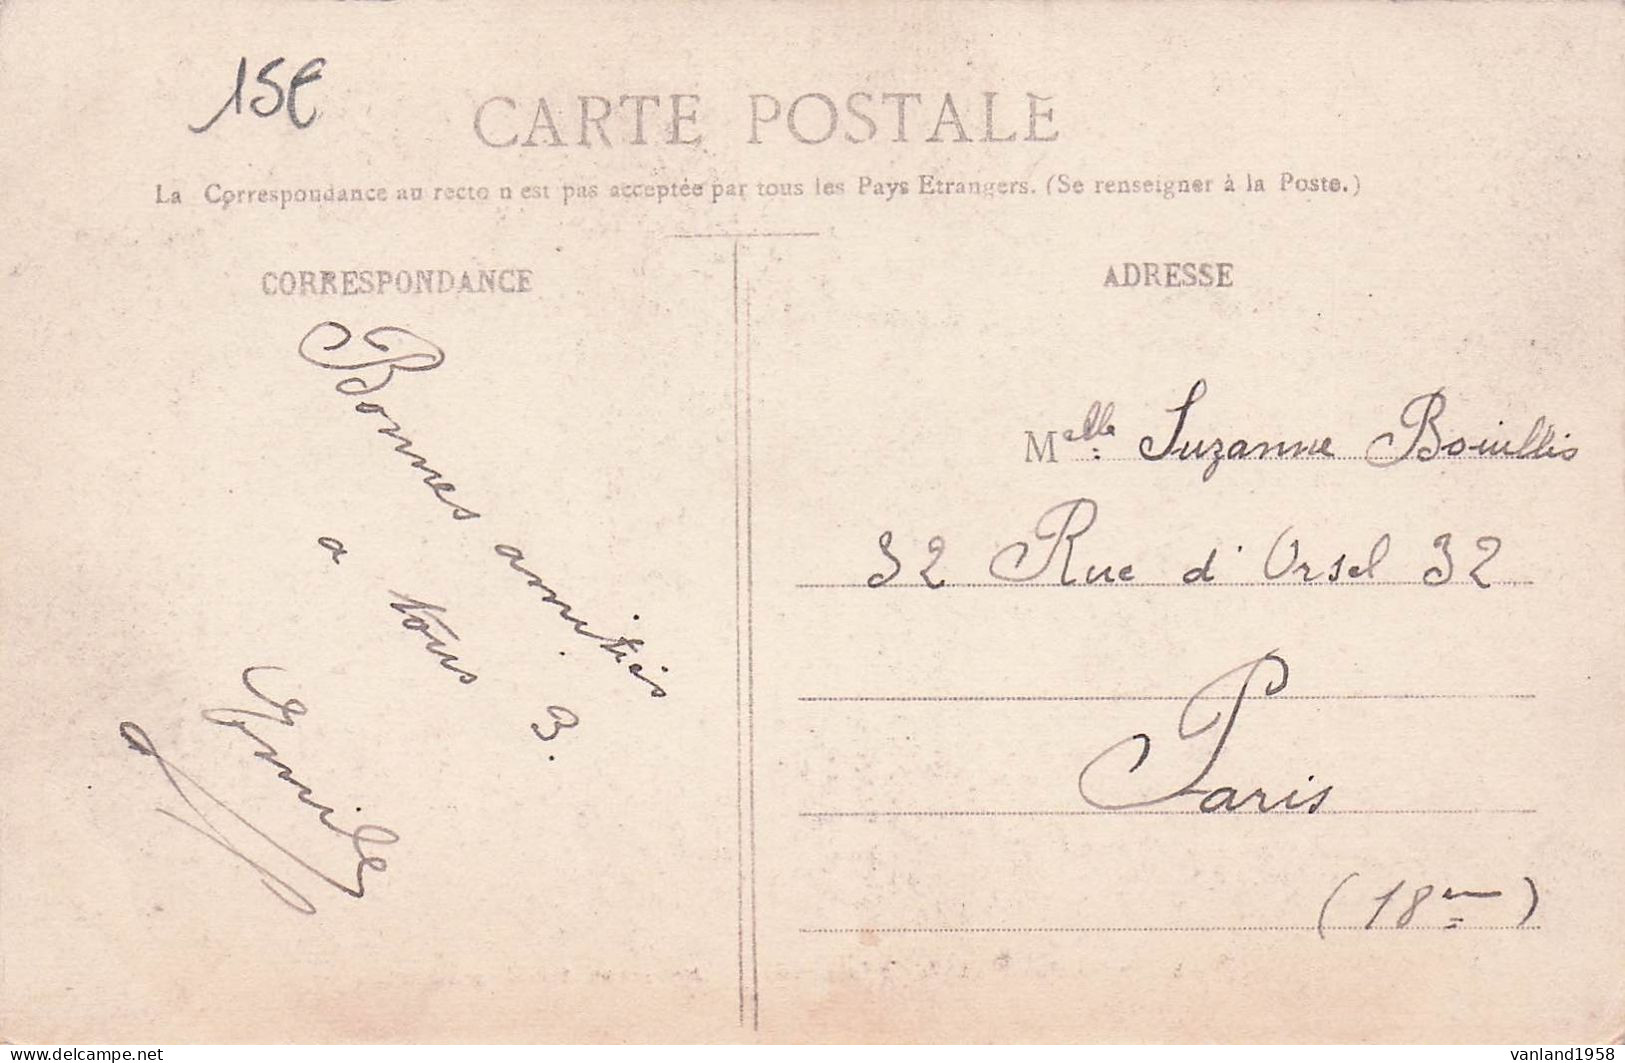 15€
CARTE POSTALE
La Correspondance au recto n'est pas acceptée par tous les Pays Etrangers. (Se renseigner à la Poste.)
CORRESPONDANCE
Bonnes amitiés
a tous 3.
Emile
ADRESSE
Melle Suzanne Bouillis
32 Rue d'Orsel 32
Paris
(18em)
www.delcampe.net
vanland1958